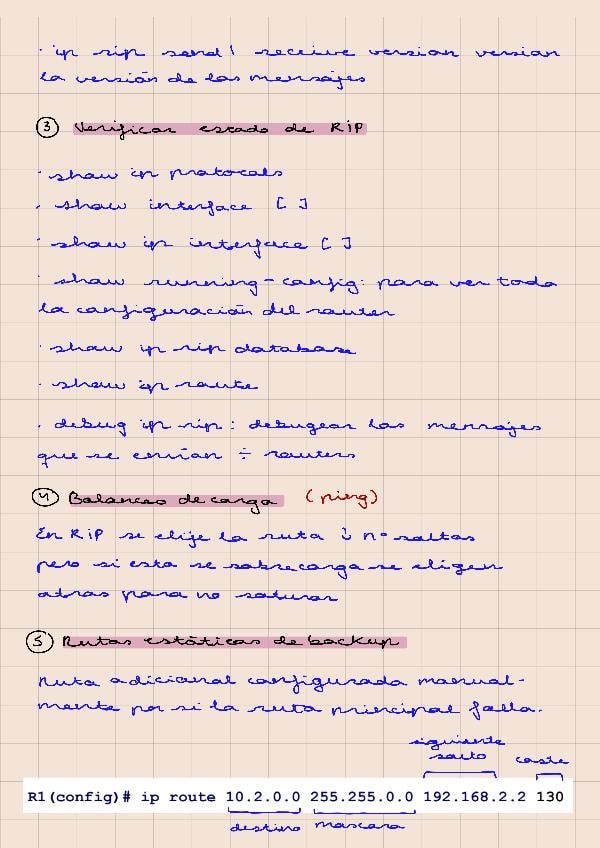 · ip rip send | receive version version
la versión de los mensajes
③ Verificar estado de RIP
· show ip protocols
· show interface [ ]
· show ip interface [ ]
· show running-config: para ver toda
la configuración del router
· show ip rip database
· show ip route
· debug ip rip: debugear los mensajes
que se envían ÷ routers
④ Balanceo de carga (ping)
En RIP se elije la ruta ↓ nº saltos
pero si esta se sobrecarga se eligen
otras para no saturar
⑤ Rutas estáticas de backup
Ruta adicional configurada manual-
mente por si la ruta principal falla.
siguiente
salto coste
R1(config)# ip route 10.2.0.0 255.255.0.0 192.168.2.2 130
destino máscara